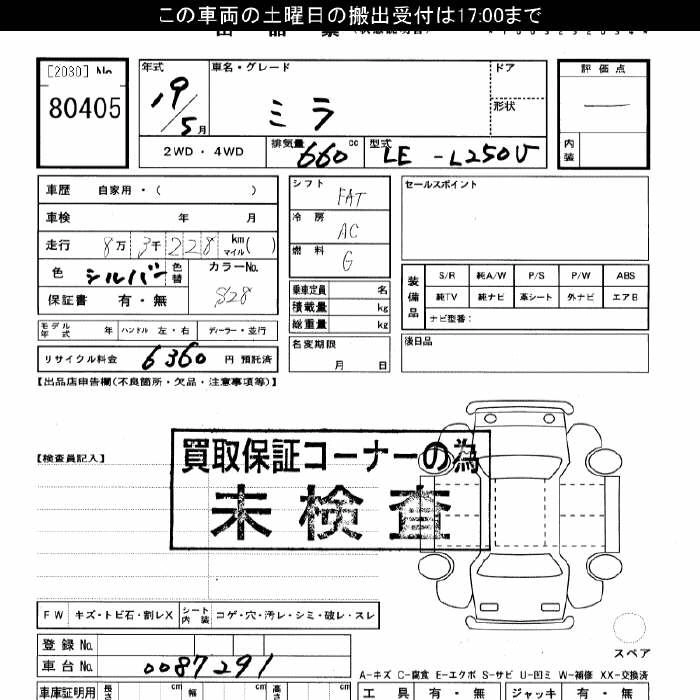 この車両の土曜日の搬出受付は17:00まで
[2030] No
80405
年式 19/5月
車名・グレード ミラ
ドア
形状
2WD・4WD
排気量 660 cc
型式 LE -L250V
評価点 —
内装
車歴 自家用・( )
車検 年 月
走行 8万3千228 km マイル( )
色 シルバー 色替 カラーNo. S28
保証書 有・無
シフト FAT
冷房 AC
燃料 G
乗車定員 名
積載量 kg
総重量 kg
名変期限 月 日
セールスポイント
装備品
S/R 純A/W P/S P/W ABS
純TV 純ナビ 革シート 外ナビ エアB
ナビ型番:
後日品
モデル年式 年 ハンドル 左・右 ディーラー・並行
リサイクル料金 6360 円 預託済
【出品店申告欄(不良箇所・欠品・注意事項等)】
【検査員記入】
買取保証コーナーの為
未検査
FW キズ・トビ石・割レX シート内装 コゲ・穴・汚レ・シミ・破レ・スレ
登録 No.
車台 No. 0087291
スペア
A-キズ C-腐食 E-エクボ S-サビ U-凹ミ W-補修 XX-交換済
車庫証明用 長さ cm 幅 cm 高さ cm
工具 有・無 ジャッキ 有・無